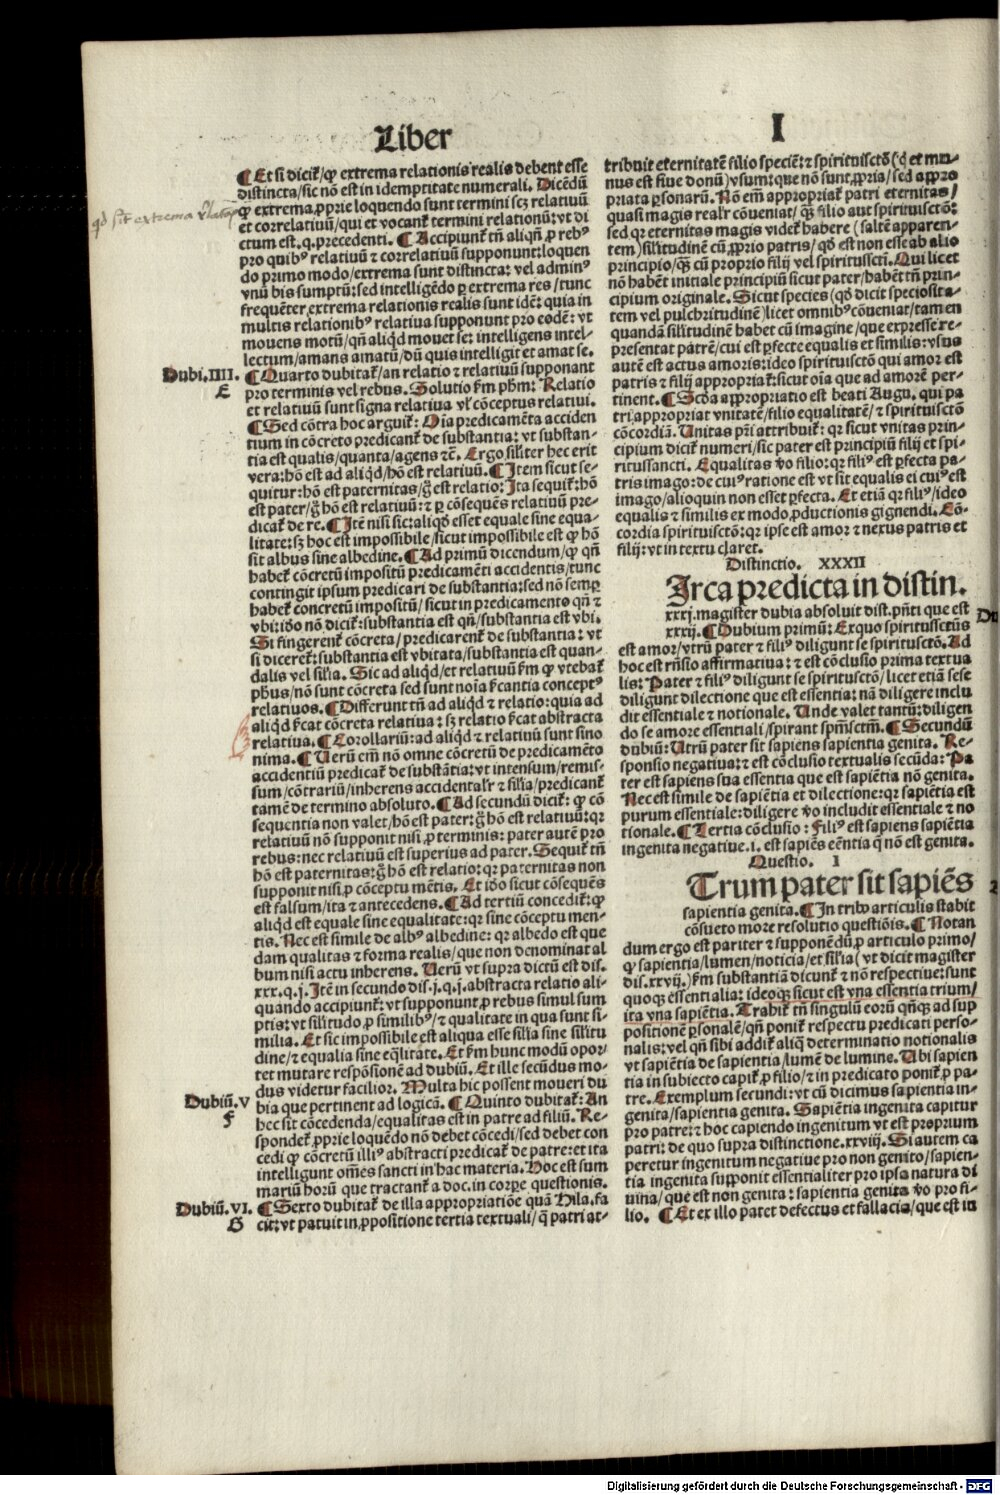 Liber
I
¶ Et si dicit᷑/ꝙ extrema relationis realis debent esse
distincta/sic nō est in idemptitate numerali. Dicēdū
ꝙ extrema ꝓprie loquendo sunt termini scꝫ relatiuū
et correlatiuū/qui et vocant᷑ termini relationū: vt di
ctum est .q. precedenti. ¶ Accipiunt᷑ tn̄ aliqn̄ ꝓ rebꝰ
pro quibꝰ relatiuū ⁊ correlatiuū supponunt: loquen
do primo modo/extrema sunt distincta: vel adminꝰ
vnū bis sumptū: sed intelligēdo ꝑ extrema res/tunc
frequēter extrema relationis realis sunt idē: quia in
multis relationibꝰ relatiua supponunt pro eodē: vt
mouens motū/qn̄ aliqd mouet se: intelligens intel-
lectum/amans amatū/dū quis intelligit et amat se.
Dubi.IIII.
E
¶ Quarto dubitat᷑/an relatio ⁊ relatiuū supponant
pro terminis vel rebus. Solutio ẜm phm̄: Relatio
et relatiuū sunt signa relatiua vl̓ cōceptus relatiui.
¶ Sed cōtra hoc arguit᷑: Oīa predicamēta acciden
tium in cōcreto predicant᷑ de substantia: vt substan-
tia est qualis/quanta/agens ⁊c̄. Ergo sil̓iter hec erit
vera: hō est ad aliqd/hō est relatiuū. ¶ Item sicut se-
quitur: hō est paternitas/g̊ est relatio: Ita sequit᷑: hō
est pater/g̊ hō est relatiuū: ⁊ ꝑ cōsequēs relatiuū pre-
dicat᷑ de re. ¶ Itē nisi sic: aliqd esset equale sine equa-
litate: sꝫ hoc est impossibile/sicut impossibile est ꝙ hō
sit albus sine albedine. ¶ Ad primū dicendum/ꝙ qn̄
habet᷑ cōcretū impositū predicamēti accidentis/tunc
contingit ipsum predicari de substantia: sed nō semꝑ
habet᷑ concretū impositū/sicut in predicamento qn̄ ⁊
vbi: iđo nō dicit᷑: substantia est qn̄/substantia est vbi.
Si fingerent᷑ cōcreta/predicarent᷑ de substantia: vt
si diceret᷑: substantia est vbitata/substantia est quan-
dalis vel sil̓ia. Sic ad aliqd/et relatiuū ẜm ꝙ vtebat᷑
phꝰs/nō sunt cōcreta sed sunt noīa ẜcantia conceptꝰ
relatiuos. ¶ Differunt tn̄ ad aliqd ⁊ relatio: quia ad
aliqd ẜcat cōcreta relatiua: sꝫ relatio ẜcat abstracta
relatiua. ¶ Corollariū: ad aliqd ⁊ relatiuū sunt sino
nima. ¶ Verū em̄ nō omne cōcretū de predicamēto
accidentiū predicat᷑ de substātia: vt intensum/remis-
sum/cōtrariū/inherens accidentalr̓ ⁊ sil̓ia/predicant᷑
tamē de termino absoluto. ¶ Ad secundū dicit᷑: ꝙ cō
sequentia non valet/hō est pater: g̊ hō est relatiuū: qꝛ
relatiuū nō supponit nisi ꝓ terminis: pater autē pro
rebus: nec relatiuū est superius ad pater. Sequit᷑ tn̄
hō est paternitas: g̊ hō est relatio: qꝛ paternitas non
supponit nisi ꝓ cōceptu mētis. Et iđo sicut cōsequēs
est falsum/ita ⁊ antecedens. ¶ Ad tertiū concedit᷑: ꝙ
aliqd est equale sine equalitate: qꝛ sine cōceptu men-
tis. Nec est simile de albꝰ albedine: qꝛ albedo est que
dam qualitas ⁊ forma realis/que non denominat al
bum nisi actu inherens. Verū vt supra dictū est dis.
xxx.q.j. Itē in secundo dis.j.q.j. abstracta relatio ali-
quando accipiunt᷑: vt supponunt ꝓ rebus simul sum
ptis: vt sil̓itudo ꝓ similibꝰ/⁊ qualitate in qua sunt si-
milia. Et sic impossibile est aliqua esse sil̓ia sine sil̓itu
dine/⁊ equalia sine eq̄litate. Et ẜm hunc modū opor-
tet mutare respōsionē ad dubiū. Et ille secūdus mo-
dus videtur facilior. Multa hic possent moueri du
Dubiū.V
F
bia que pertinent ad logicā. ¶ Quinto dubitat᷑: An
hec sit cōcedenda/equalitas est in patre ad filiū. Re-
spondet᷑ ꝓprie loquēdo nō debet cōcedi/sed debet con
cedi ꝙ cōcretū illiꝰ abstracti predicat᷑ de patre: et ita
intelligunt om̄es sancti in hac materia. Hoc est sum
mariū horū que tractant᷑ a doc. in corꝑe questionis.
Dubiū.VI.
G
¶ Sexto dubitat᷑ de illa appropriatiōe quā Hila. fa
cit: vt patuit in ꝓpositione tertia textuali/q̄ patri at-
tribuit eternitatē filio speciē: ⁊ spirituisctō (qd et mu-
nus est siue donū) vsum: que nō sunt ꝓpria/sed apꝓ
priata ꝑsonarū. Nō em̄ appropriat᷑ patri eternitas/
quasi magis realr̓ cōueniat/qꝫ filio aut spirituisctō:
sed qꝛ eternitas magis videt᷑ habere (saltē apparen-
tem) sil̓itudinē cū ꝓprio patris/qd est non esse ab alio
principio/qꝫ cū proprio filij vel spiritussctī. Qui licet
nō habēt initiale principiū sicut pater/habēt tn̄ prin-
cipium originale. Sicut species (qd dicit speciosita-
tem vel pulchritudinē) licet omnibꝰ cōueniat/tamen
quandā sil̓itudinē habet cū imagine/que expresse re-
presentat patrē/cui est ꝑfecte equalis et similis: vsus
autē est actus amoris: ideo spirituisctō qui amor est
patris ⁊ filij appropriat᷑: sicut oīa que ad amorē per-
tinent. ¶ Scđa appropriatio est beati Augu. qui pa
tri appropriat vnitatē/filio equalitatē/⁊ spirituisctō
cōcordiā. Unitas pr̄i attribuit᷑: qꝛ sicut vnitas prin-
cipium dicit᷑ numeri/sic pater est principiū filij et spi-
ritussancti. Equalitas v̊o filio: qꝛ filiꝰ est ꝑfecta pa-
tris imago: de cuiꝰ ratione est vt sit equalis ei cuiꝰ est
imago/alioquin non esset ꝑfecta. Et etiā qꝛ filiꝰ/ideo
equalis ⁊ similis ex modo ꝓductionis gignendi. Cō-
cordia spirituisctō: qꝛ ipse est amor ⁊ nexus patris et
filij: vt in textu claret.
Distinctio. XXXII
Irca predicta in distin.
xxxj. magister dubia absoluit dist. pn̄ti que est
Du
xxxij. ¶ Dubium primū: Ex quo spiritussctūs
est amor/vtrū pater ⁊ filiꝰ diligunt se spirituisctō. Ad
hoc est rn̄sio affirmatiua: ⁊ est cōclusio prima textua
lis: Pater ⁊ filiꝰ diligunt se spirituisctō/licet etiā sese
diligunt dilectione que est essentia: nā diligere inclu
dit essentiale ⁊ notionale. Unde valet tantū: diligen
do se amore essentiali/spirant spm̄sctm̄. ¶ Secundū
dubiū: Utrū pater sit sapiens sapientia genita. Re-
sponsio negatiua: ⁊ est cōclusio textualis secūda: Pa
ter est sapiens sua essentia que est sapiētia nō genita.
Nec est simile de sapiētia et dilectione: qꝛ sapiētia est
purum essentiale: diligere v̊o includit essentiale ⁊ no
tionale. ¶ Tertia cōclusio: Filiꝰ est sapiens sapiētia
ingenita negatiue .i. est sapiēs eēntia q̄ nō est genita.
Questio. I
Trum pater sit sapiēs
sapientia genita. ¶ In tribꝰ articulis stabit
cōsueto more resolutio questiōis. ¶ Notan
dum ergo est pariter ⁊ supponēdū ꝓ articulo primo/
ꝙ sapientia/lumen/noticia/et sil̓ia (vt dicit magister
dis.xxvij.) ẜm substantiā dicunt᷑ ⁊ nō respectiue: sunt
quoqꝫ essentialia: ideoqꝫ sicut est vna essentia trium/
ita vna sapiētia. Trahit᷑ tn̄ singulū eorū qn̄qꝫ ad sup
positionē ꝑsonalē/qn̄ ponit᷑ respectu predicati perso-
nalis: vel qn̄ sibi addit᷑ aliq̄ determinatio notionalis
vt sapiētia de sapientia/lumē de lumine. Ubi sapien
tia in subiecto capit᷑ ꝓ filio/⁊ in predicato ponit᷑ ꝓ pa-
tre. Exemplum secundi: vt cū dicimus sapientia in-
genita/sapientia genita. Sapiētia ingenita capitur
pro patre: ⁊ hoc capiendo ingenitum vt est proprium
patri: de quo supra distinctione.xxviij. Si autem ca
peretur ingenitum negatiue pro non genito/sapien-
tia ingenita supponit essentialiter pro ipsa natura di
uina/que est non genita: sapientia genita v̊o pro fi-
lio. ¶ Et ex illo patet defectus et fallacia/que est in
Digitalisierung gefördert durch die Deutsche Forschungsgemeinschaft - DFG